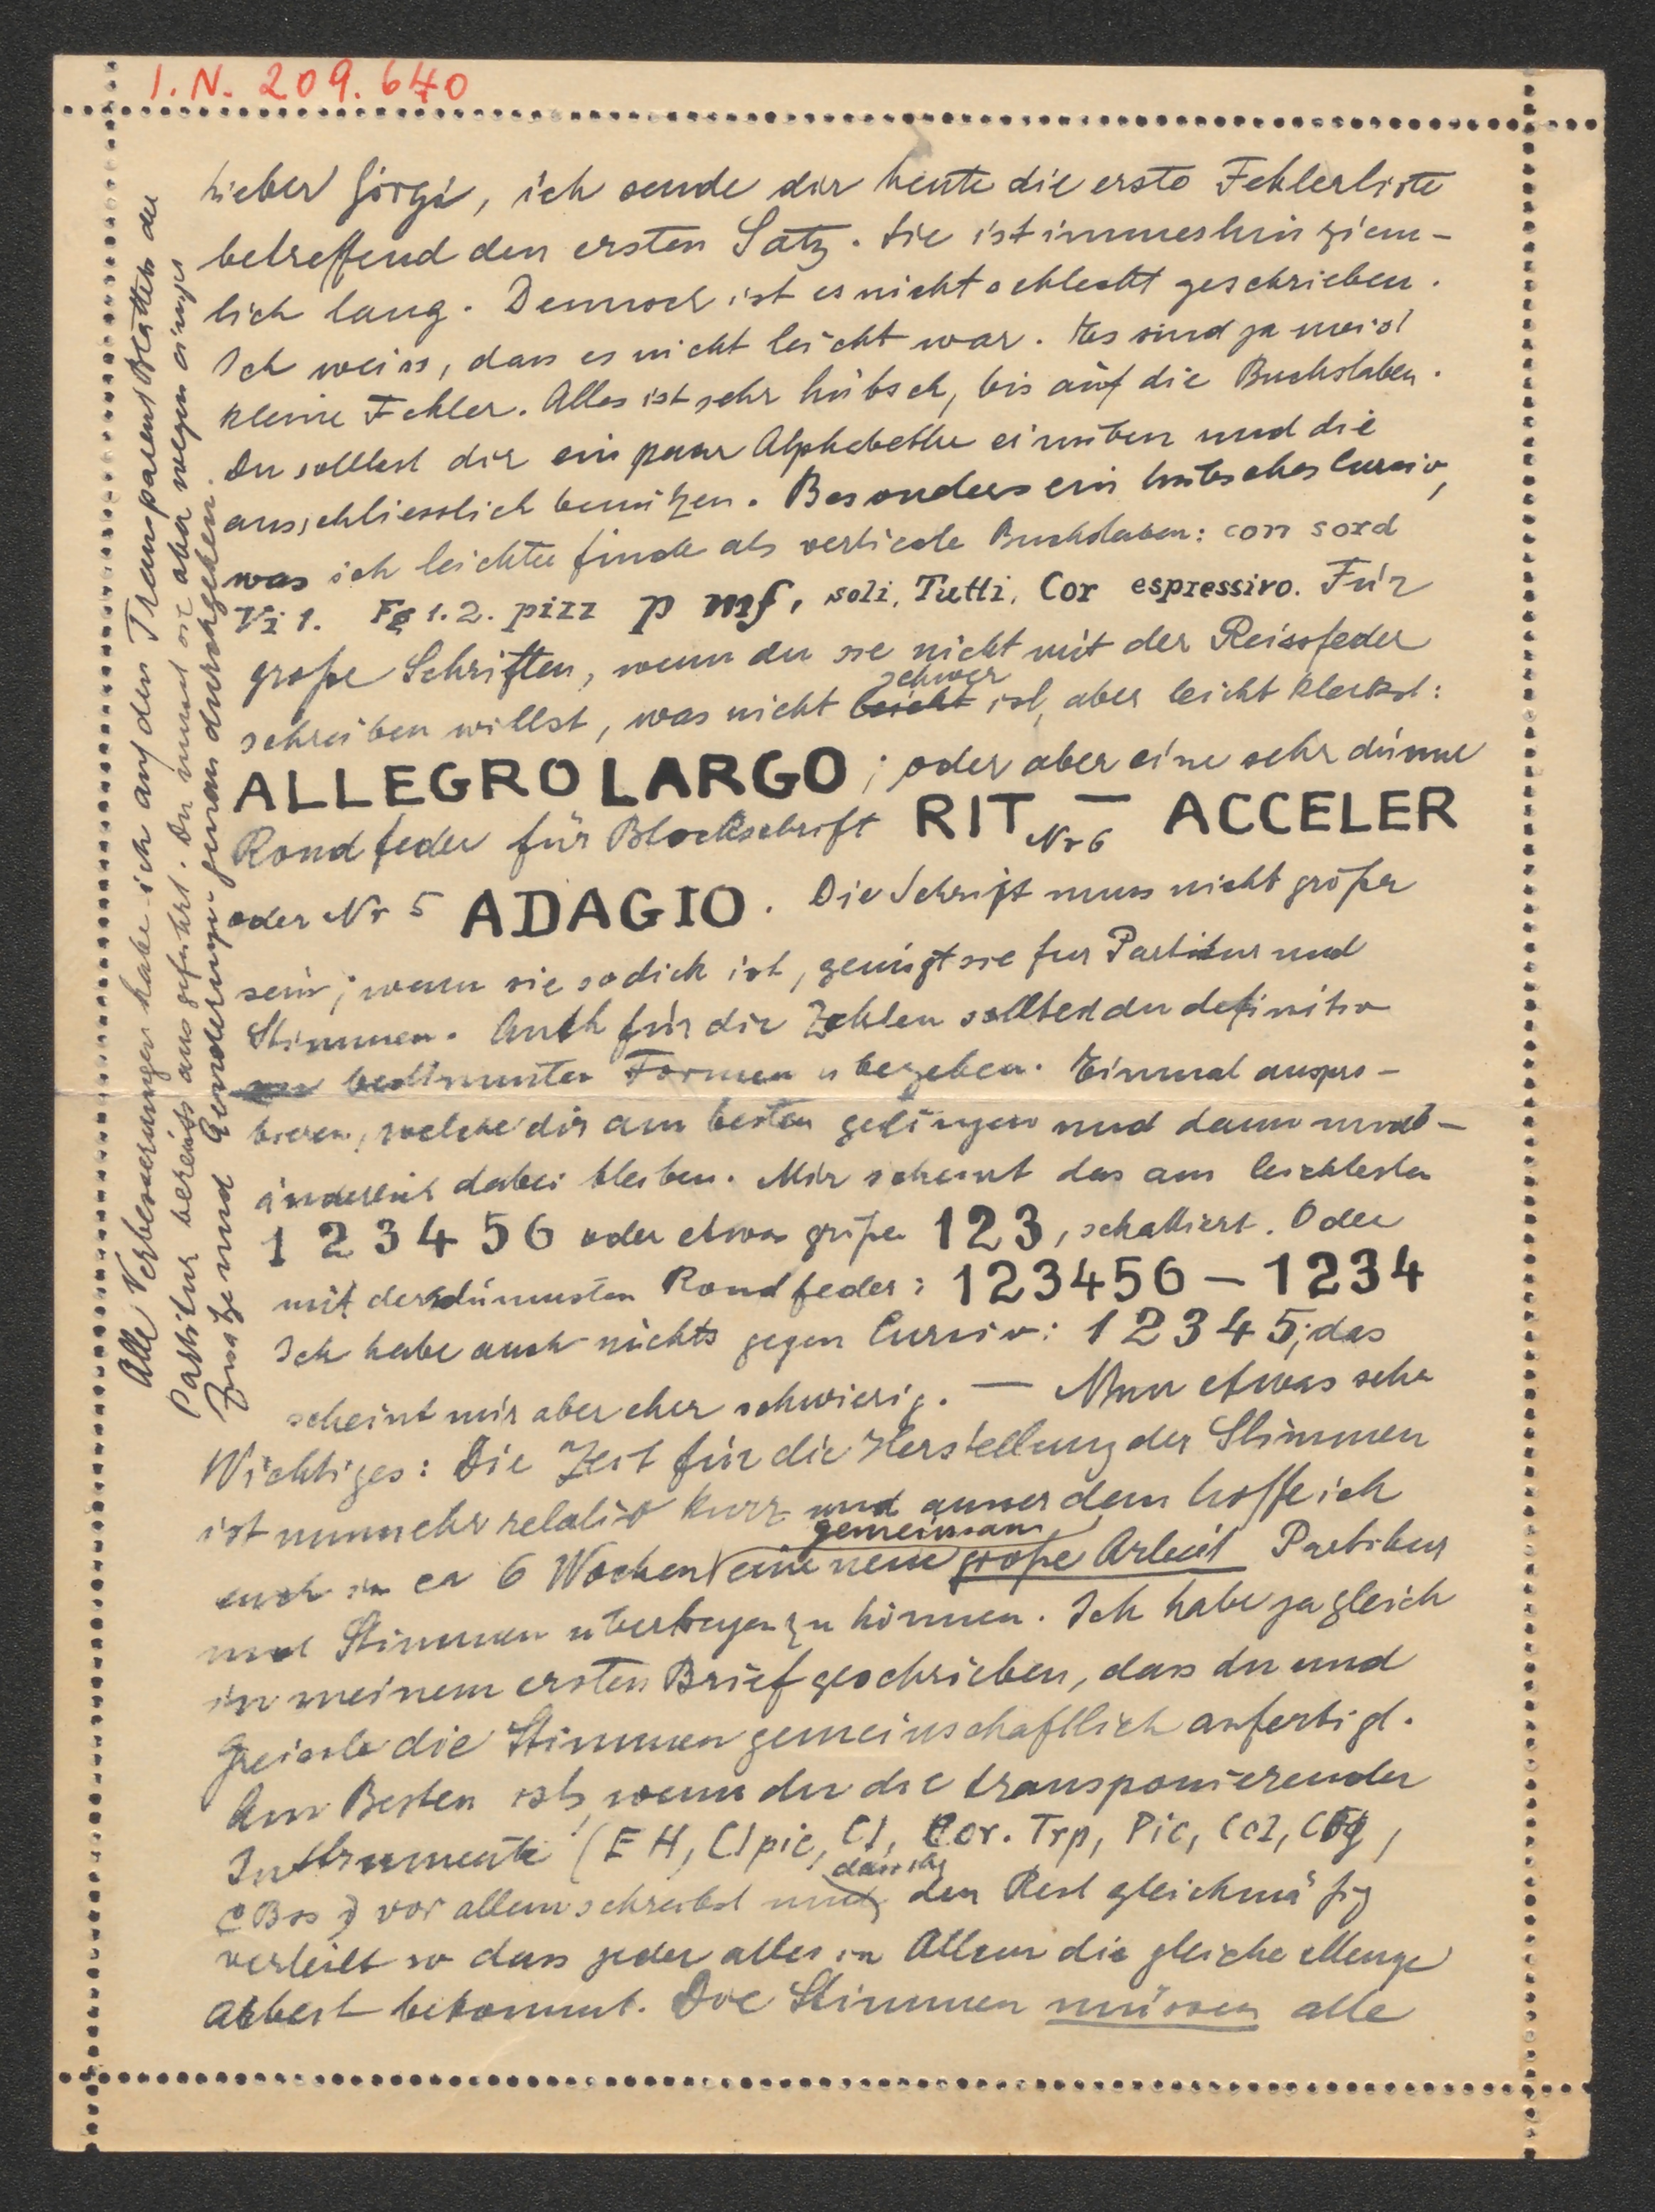 I.N. 209.640
Lieber Görgi, ich sende dir heute die erste Fehlerliste
betreffend den ersten Satz. Sie ist immerhin ziem-
lich lang. Dennoch ist es nicht schlecht geschrieben.
Ich weiss, dass es nicht leicht war. Es sind ja meist
kleine Fehler. Alles ist sehr hübsch, bis auf die Buchstaben.
Du solltest dir ein paar Alphabethe einüben und die
ausschliesslich benützen. Besonders ein hübsches Cursiv,
was ich leichter finde als verticale Buchstaben: con sord
Vi 1. Fg 1.2. pizz p mf, soli, Tutti, Cor espressivo. Für
große Schriften, wenn du sie nicht mit der Reissfeder
schreiben willst, was nicht leicht schwer ist, aber leicht kleckst:
ALLEGRO LARGO; oder aber eine sehr dünne
Rondfeder für Blockschrift RIT Nr 6 — ACCELER
oder Nr 5 ADAGIO. Die Schrift muss nicht größer
sein; wenn sie so dick ist, genügt sie für Partitur und
Stimmen. Auch für die Zahlen solltest du definitiv
bestimmten Formen begeben. Einmal auspro-
bieren, welche dir am besten gelingen und dann unab-
änderlich dabei bleiben. Mir scheint das am leichtesten
1 2 3 4 5 6 oder etwas größer 123, schattiert. Oder
mit der dünnsten Rondfeder: 123456 – 1234
Ich habe auch nichts gegen Cursiv: 1 2 3 4 5; das
scheint mir aber eher schwierig. — Nun etwas sehr
Wichtiges: Die Zeit für die Herstellung der Stimmen
ist nunmehr relativ kurz und ausserdem hoffe ich
euch in ca 6 Wochen gemeinsam eine neue große Arbeit Partitur
und Stimmen übertragen zu können. Ich habe ja gleich
in meinem ersten Brief geschrieben, dass du und
Greissle die Stimmen gemeinschaftlich anfertigt.
Am Besten ists, wenn du die transponierenden
Instrumente (EH, Clpic, Cl, Cor. Trp, Pic, Cel, Cfg,
CBss) vor allem schreibst und dass ihr den Rest gleichmäßig
verteilt so dass jeder alles in Allem die gleiche Menge
Arbeit bekommt. Die Stimmen müssen alle
Alle Verbesserungen habe ich auf den Transparent Blättern der
Partitur bereits ausgeführt. Du musst sie aber wegen einiger
Zusätze und Aenderungen genau durchgehen.